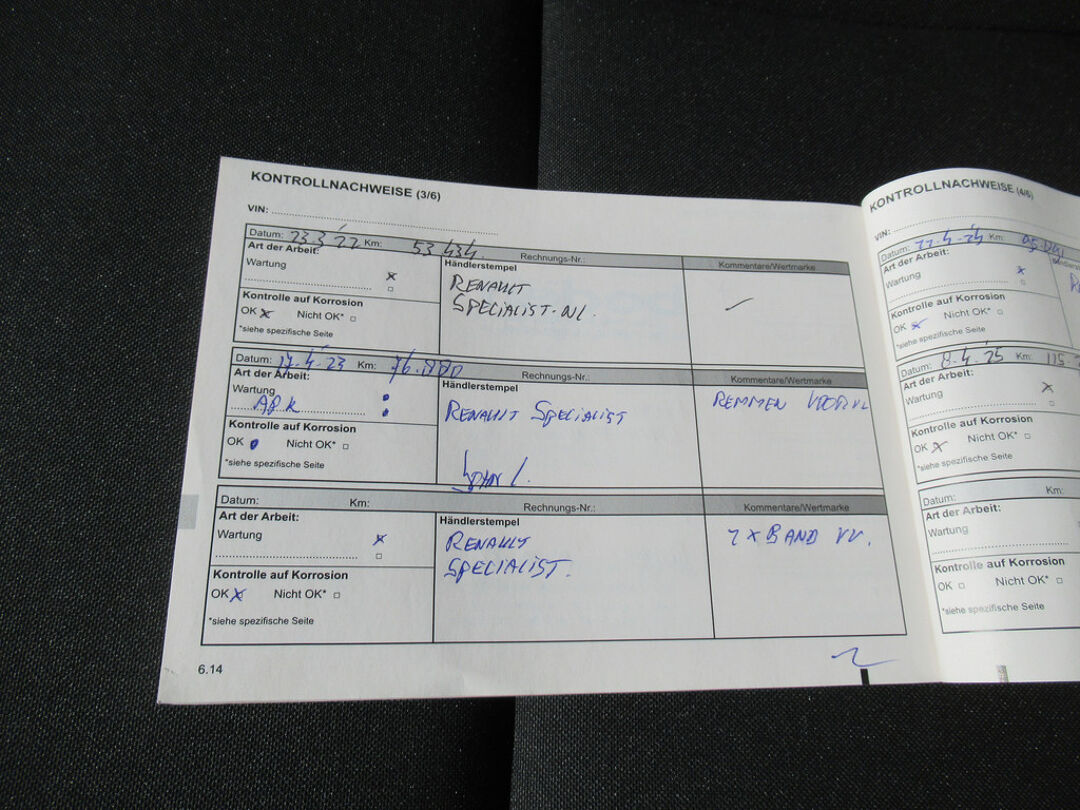 KONTROLLNACHWEISE (3/6)
VIN:
Datum: 23.3 22 Km: 53 434.
Rechnungs-Nr.:
Art der Arbeit:
Wartung
Händlerstempel
Kommentare/Wertmarke
RENAULT
SPECIALIST.NL.
Kontrolle auf Korrosion
OK Nicht OK*
*siehe spezifische Seite
Datum: 17.4.23 Km:
Rechnungs-Nr.:
Art der Arbeit:
Wartung
APK
Händlerstempel
Kommentare/Wertmarke
RENAULT SPECIALIST
REMMEN
Kontrolle auf Korrosion
OK Nicht OK*
*siehe spezifische Seite
Datum: Km:
Rechnungs-Nr.:
Art der Arbeit:
Wartung
Händlerstempel
Kommentare/Wertmarke
RENAULT
SPECIALIST.
2 x BAND VV.
Kontrolle auf Korrosion
OK Nicht OK*
*siehe spezifische Seite
6.14
KONTROLLNACHWEISE (4/6)
VIN:
Datum: Km:
Art der Arbeit:
Wartung
Kontrolle auf Korrosion
OK Nicht OK*
*siehe spezifische Seite
Datum: 8.4.25 Km: 115
Art der Arbeit:
Wartung
Kontrolle auf Korrosion
OK Nicht OK*
*siehe spezifische Seite
Datum: Km:
Art der Arbeit:
Wartung
Kontrolle auf Korrosion
OK Nicht OK*
*siehe spezifische Seite